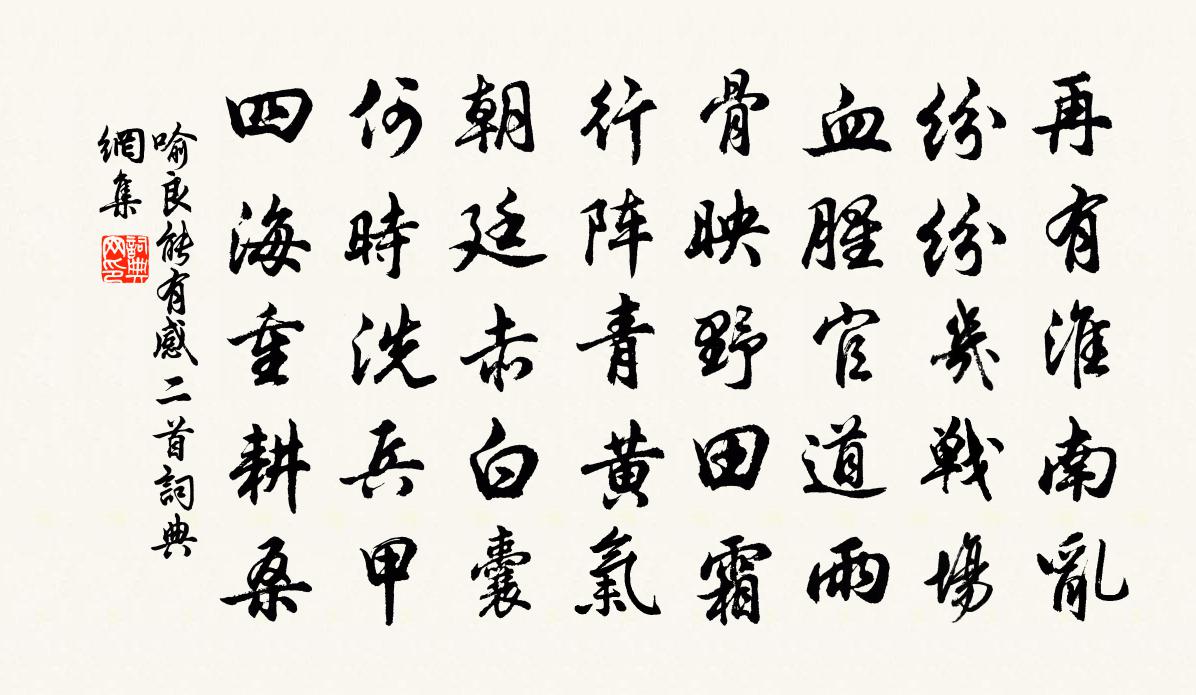 再有淮南亂
紛紛幾戰場
血腥官道雨
骨映野田霜
行阵青黃氣
朝廷赤白囊
何時洗兵甲
四海重耕桑
喻良能有感二首詞典
網集
詞典网印